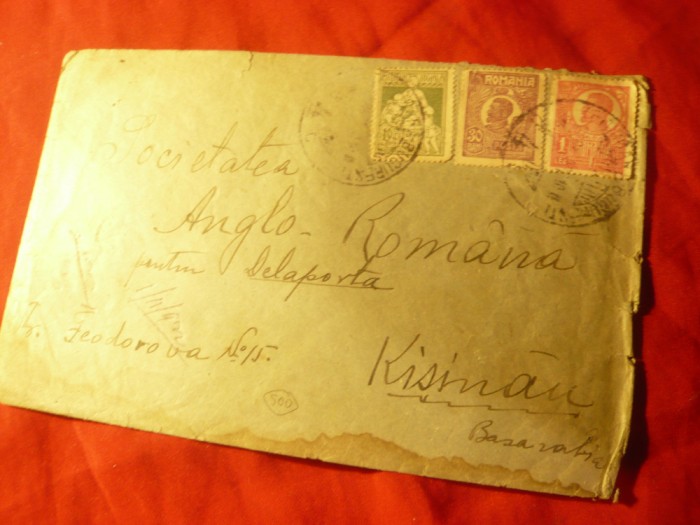 ROMANIA
1
Societatea
Anglo-Română
pentru Delaporta
Feodorova No 15.
Kișinău
Basarabia